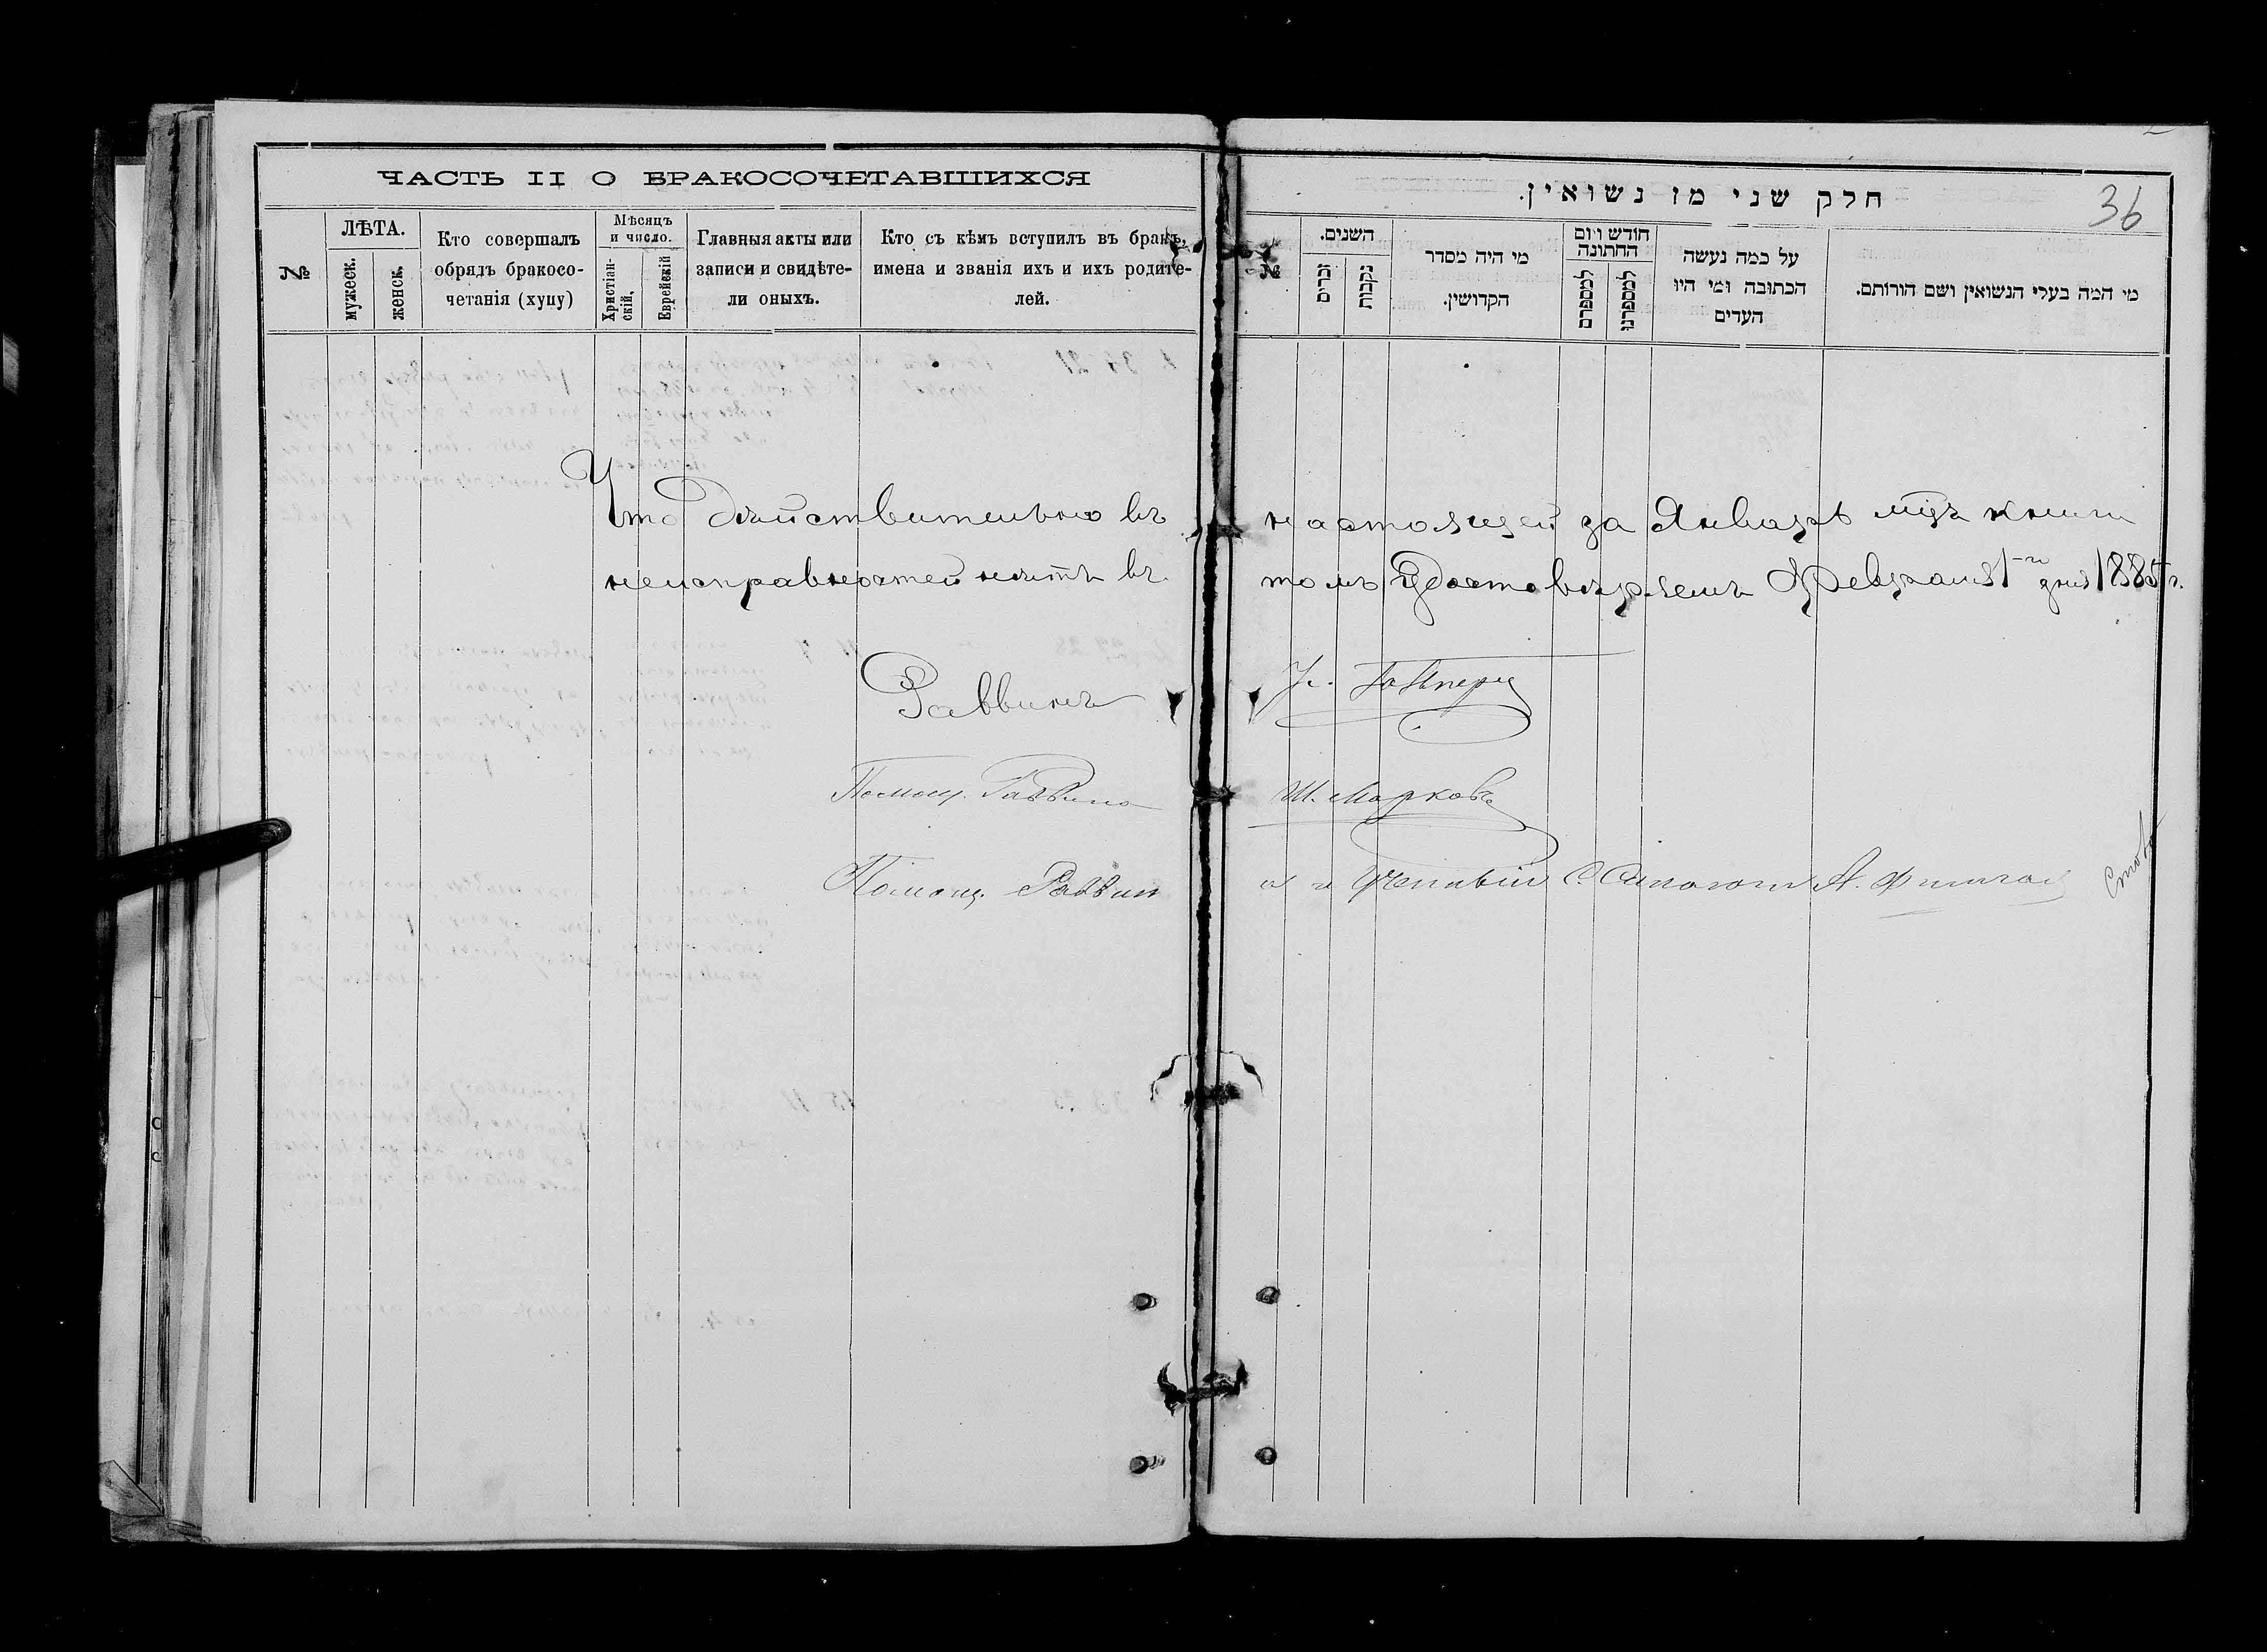 ЧАСТЬ II О БРАКОСОЧЕТАВШИХСЯ
№
ЛѢТА.
мужеск.
женск.
Кто совершалъ
обрядъ бракосо-
четанія (хупу)
Мѣсяцъ
и число.
Христіан-
скій,
Еврейскій
Главныя акты или
записи и свидѣте-
ли оныхъ.
Кто съ кѣмъ вступилъ въ бракъ,
имена и званія ихъ и ихъ родите-
лей.
חלק שני מן נשואין.
36
№
השנים.
זכרים
נקבות
מי היה מסדר
הקדושין.
חודש ויום
החתונה
למספרם
למספרנו
על כמה נעשה
הכתובה ומי היו
העדים
מי המה בעלי הנשואין ושם הורותם.
Что дѣйствительно въ настоящей за Январь мцъ книги
неисправностей нѣтъ въ томъ удостовѣряемъ Февраля 1-го дня 1885 г.
Раввинъ
Помощ. Раввина Ш. Марковъ
Помощ. Раввин